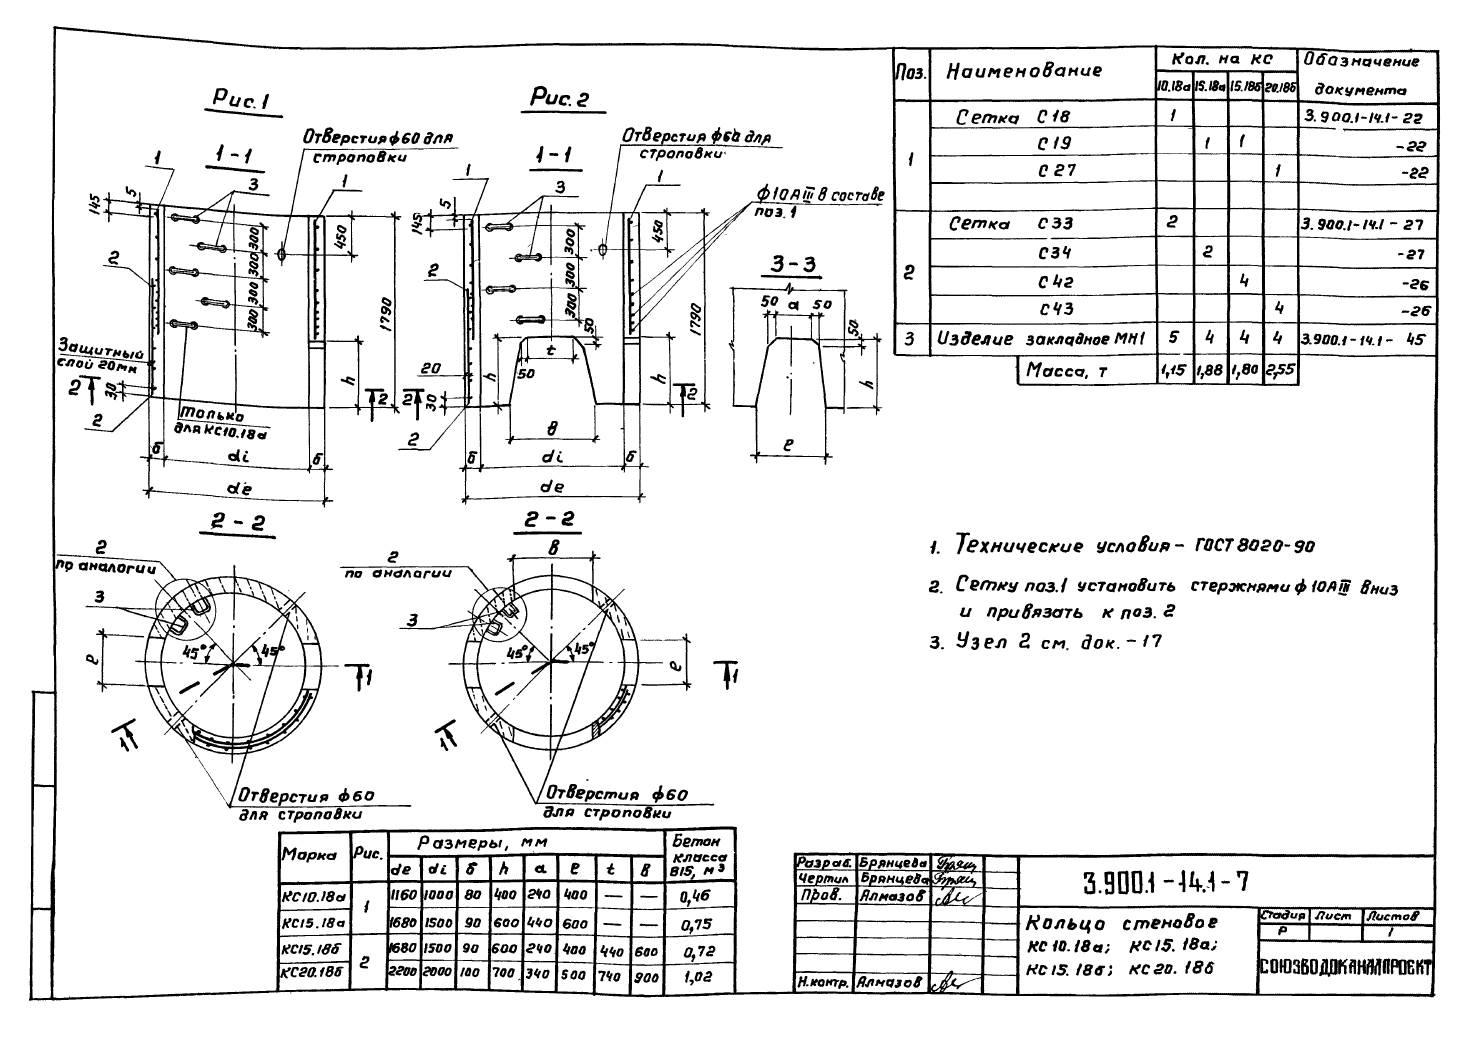 Рис.1
Рис.2
1-1
1-1
Отверстия ф60 для
строповки
Отверстия ф60 для
строповки
1
3
1
1
3
1
ф10АIII в составе
поз.1
145
5
2
300
300
300
300
450
1790
145
5
2
300
300
300
450
1790
3-3
50 а 50
50
h
е
50
t
50
h
h
20
30
в
Защитный
слой 20мм
30
2
2
2
2
2
2
h
только
для КС10.18а
б
di
б
de
б
di
б
de
2-2
2-2
2
по аналогии
3
е
45°
45°
1
1
2
по аналогии
3
в
45°
45°
е
1
1
Отверстия ф60
для строповки
Отверстия ф60
для строповки
Поз. Наименование Кол. на КС Обозначение документа
10.18а 15.18а 15.18б 20.18б
1 Сетка С18 1 3.900.1-14.1-22
С19 1 1 -22
С27 1 -22
2 Сетка С33 2 3.900.1-14.1-27
С34 2 -27
С42 4 -26
С43 4 -26
3 Изделие закладное МН1 5 4 4 4 3.900.1-14.1-45
Масса, т 1,15 1,88 1,80 2,55
1. Технические условия - ГОСТ 8020-90
2. Сетку поз.1 установить стержнями ф10АIII вниз
и привязать к поз. 2
3. Узел 2 см. док. -17
Марка Рис. Размеры, мм Бетон класса В15, м3
de di б h а е t в
КС10.18а 1 1160 1000 80 400 240 400 — — 0,46
КС15.18а 1680 1500 90 600 440 600 — — 0,75
КС15.18б 2 1680 1500 90 600 240 400 440 600 0,72
КС20.18б 2200 2000 100 700 340 500 740 900 1,02
Разраб. Брянцева
Чертил Брянцева
Пров. Алмазов
Н.контр. Алмазов
3.900.1-14.1-7
Кольцо стеновое
КС10.18а; КС15.18а;
КС15.18б; КС20.18б
Стадия Лист Листов
Р 1
СОЮЗВОДОКАНАЛПРОЕКТ